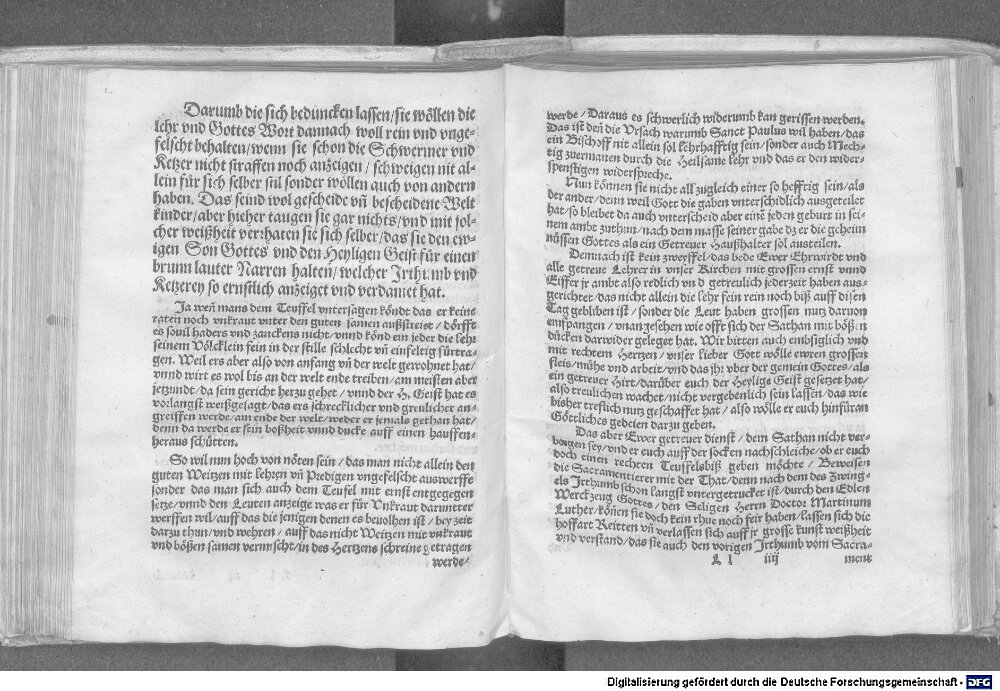 Darumb die sich beduncken lassen/sie wöllen die
lehr vnd Gottes Wort dannach woll rein vnd vnge-
felscht behalten/wenn sie schon die Schwermer vnd
Ketzer nicht straffen noch anzeigen/schweigen nit al-
lein für sich selber stil sonder wöllen auch von andern
haben. Das seind wol gescheide vñ bescheidene Welt
kinder/aber hieher taugen sie gar nichts/vnd mit sol-
cher weißheit verrhaten sie sich selber/das sie den ew-
igen Son Gottes vnd den Heyligen Geist für einen
brunn lauter Narren halten/welcher Irthumb vnd
Ketzerey so ernstlich anzeiget vnd verdamet hat.
Ja weñ mans dem Teuffel vntersagen köndt das er keins
raten noch vnkraut vnter den guten samen außstreist/dörfft
es souil haders vnd zanckens nicht/vnnd könd ein jeder die lehr
seinem Völcklein fein in der stille schlecht vñ einfeltig fürtra-
gen. Weil ers aber also von anfang vñ der welt gewohnet hat/
vnnd wirt es wol bis an der welt ende treiben/am meisten aber
jetzundt/da sein gericht herzu gehet/vnnd der H. Geist hat es
vorlangst weißgesagt/das ers schrecklicher vnd greulicher an-
greiffen werde/am ende der welt/weder er jemals gethan hat/
denn da werde er sein boßheit vnnd ducke auff einen hauffen-
heraus schütten.
So wil nun hoch von nöten sein/das man nicht allein den
guten Weitzen mit lehren vñ Predigen vngefelscht auswerffe
sonder das man sich auch dem Teufel mit ernst entgegegen
setze/vnnd den Leuten anzeige was er für Vnkraut daruntter
werffen wil/auff das die jenigen denen es beuolhen ist/bey zeit
darzu thun/vnd wehren/auff das nicht Weitzen mit vnkraut
vnd bößen samen vermischt/in des Hertzens schreine getragen
werde/
werde/Daraus es schwerlich widerumb kan gerissen werden.
Das ist deñ die Vrsach warumb Sanct Paulus wil haben/das
ein Bischoff nit allein sol lehrhafftig sein/sonder auch Mech-
tig zuermanen durch die Heilsame lehr vnd das er den wider-
spenstigen widerspreche.
Nun können sie nicht all zugleich einer so hefftig sein/als
der ander/denn weil Gott die gaben vnterschidlich ausgeteilet
hat/so bleibet da auch vnterscheid aber einẽ jeden geburt in sei-
nem ambt zuthun/nach dem masse seiner gabe dz er die geheim
nüssen Gottes als ein Getreuer Haußhalter sol austeilen.
Demnach ist kein zweyffel/das bede Ewer Ehrwirdt vnd
alle getreue Lehrer in vnser Kirchen mit grossen ernst vnnd
Eiffer jr ambt also redlich vnd getreulich jederzeit haben aus-
gerichtet/das nicht allein die lehr fein rein noch biß auff disen
Tag gebliben ist/sonder die Leut haben grossen nutz daruon
entpfangen/vnangesehen wie offt sich der Sathan mit bößen
dücken darwider geleget hat. Wir bitten auch embsiglich vnd
mit rechtem Hertzen/vnser lieber Gott wölle ewren grossen
fleis/mühe vnd arbeit/vnd das jhr vber der gemein Gottes/als
ein getreuer Hirt/darüber euch der Heylige Geist gesetzet hat/
also treulichen wachet/nicht vergebenlich sein lassen/das wie
bisher treflich nutz geschaffet hat/also wölle er euch hinfüran
Göttliches gedeien darzu geben.
Das aber Ewer getreuer dienst/dem Sathan nicht ver-
borgen sey/vnd er euch auff der socken nachschleiche/ob er euch
doch einen rechten Teuffelsbiß geben möchte/Beweisen
die Sacramentierer mit der That/denn nach dem des Zwing-
els Irthumb schon langst vntergetrucket ist/durch den Edlen
Werckzeug Gottes/den Seligen Herrn Doctor Martinum
Luther/köñen sie doch kein rhue noch feir haben/lassen sich die
hoffart Reitten vñ verlassen sich auff jr grosse kunst weißheit
vnd verstand/das sie auch den vorigen Irthumb vom Sacra-
L l iiij ment
Digitalisierung gefördert durch die Deutsche Forschungsgemeinschaft - DFG